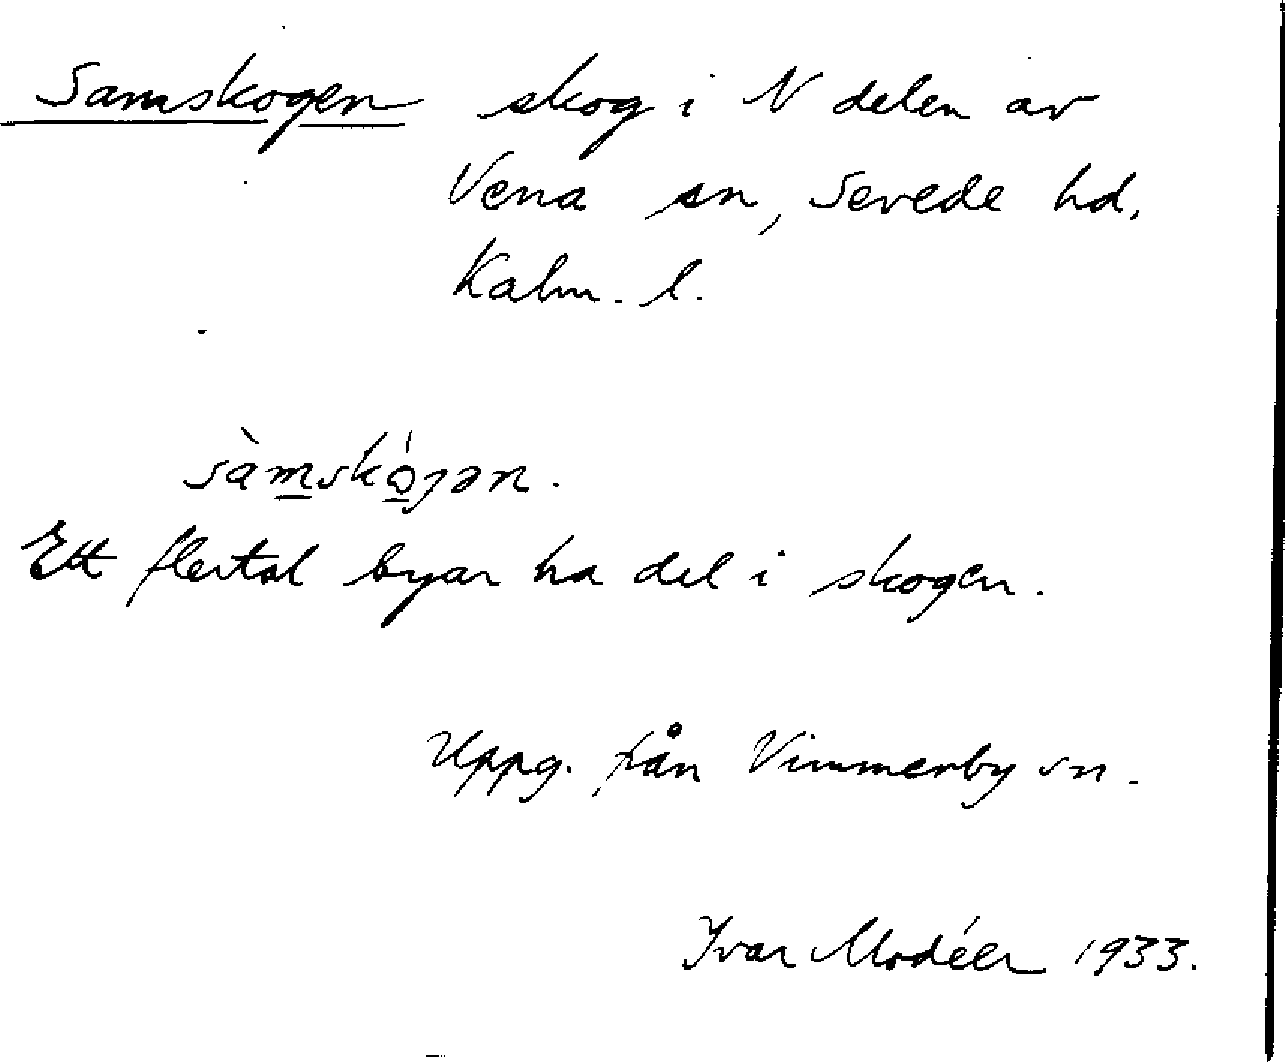 Samskogen skog i N delen av
Vena sn, Sevede hd,
Kalm. l.
sàm̲skó̲ȷən.
Ett flertal byar ha del i skogen.
Uppg. från Vimmerby sn.
Ivar Modéer 1933.